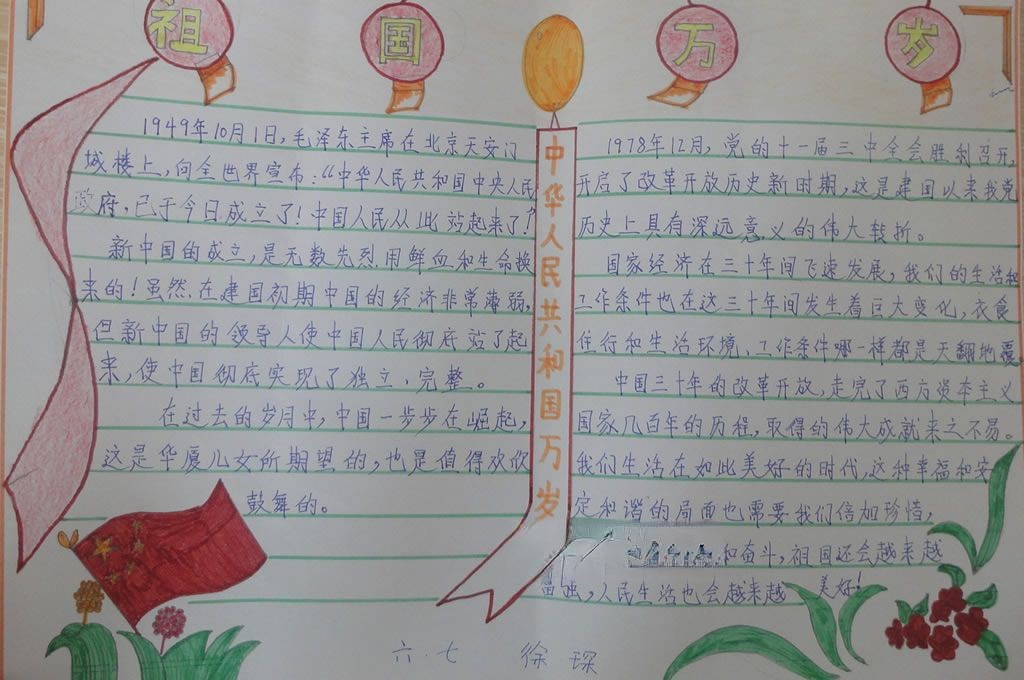 祖国万岁
1949年10月1日，毛泽东主席在北京天安门
城楼上，向全世界宣布：“中华人民共和国中央人民
政府，已于今日成立了！中国人民从此站起来了！
新中国的成立，是无数先烈用鲜血和生命换
来的！虽然，在建国初期中国的经济非常薄弱，
但新中国的领导人使中国人民彻底站了起
来，使中国彻底实现了独立、完整。
在过去的岁月中，中国一步步在崛起，
这是华厦儿女所期望的，也是值得欢欣
鼓舞的。
中华人民共和国万岁
1978年12月，党的十一届三中全会胜利召开，
开启了改革开放历史新时期，这是建国以来我党
历史上具有深远意义的伟大转折。
国家经济在三十年间飞速发展，我们的生活和
工作条件也在这三十年间发生着巨大变化，衣食
住行和生活环境、工作条件哪一样都是天翻地覆。
中国三十年的改革开放，走完了西方资本主义
国家几百年的历程，取得的伟大成就来之不易。
我们生活在如此美好的时代，这种幸福和安
定和谐的局面也需要我们倍加珍惜，
和奋斗，祖国还会越来越
富强，人民生活也会越来越 美好！
六．七 徐琛